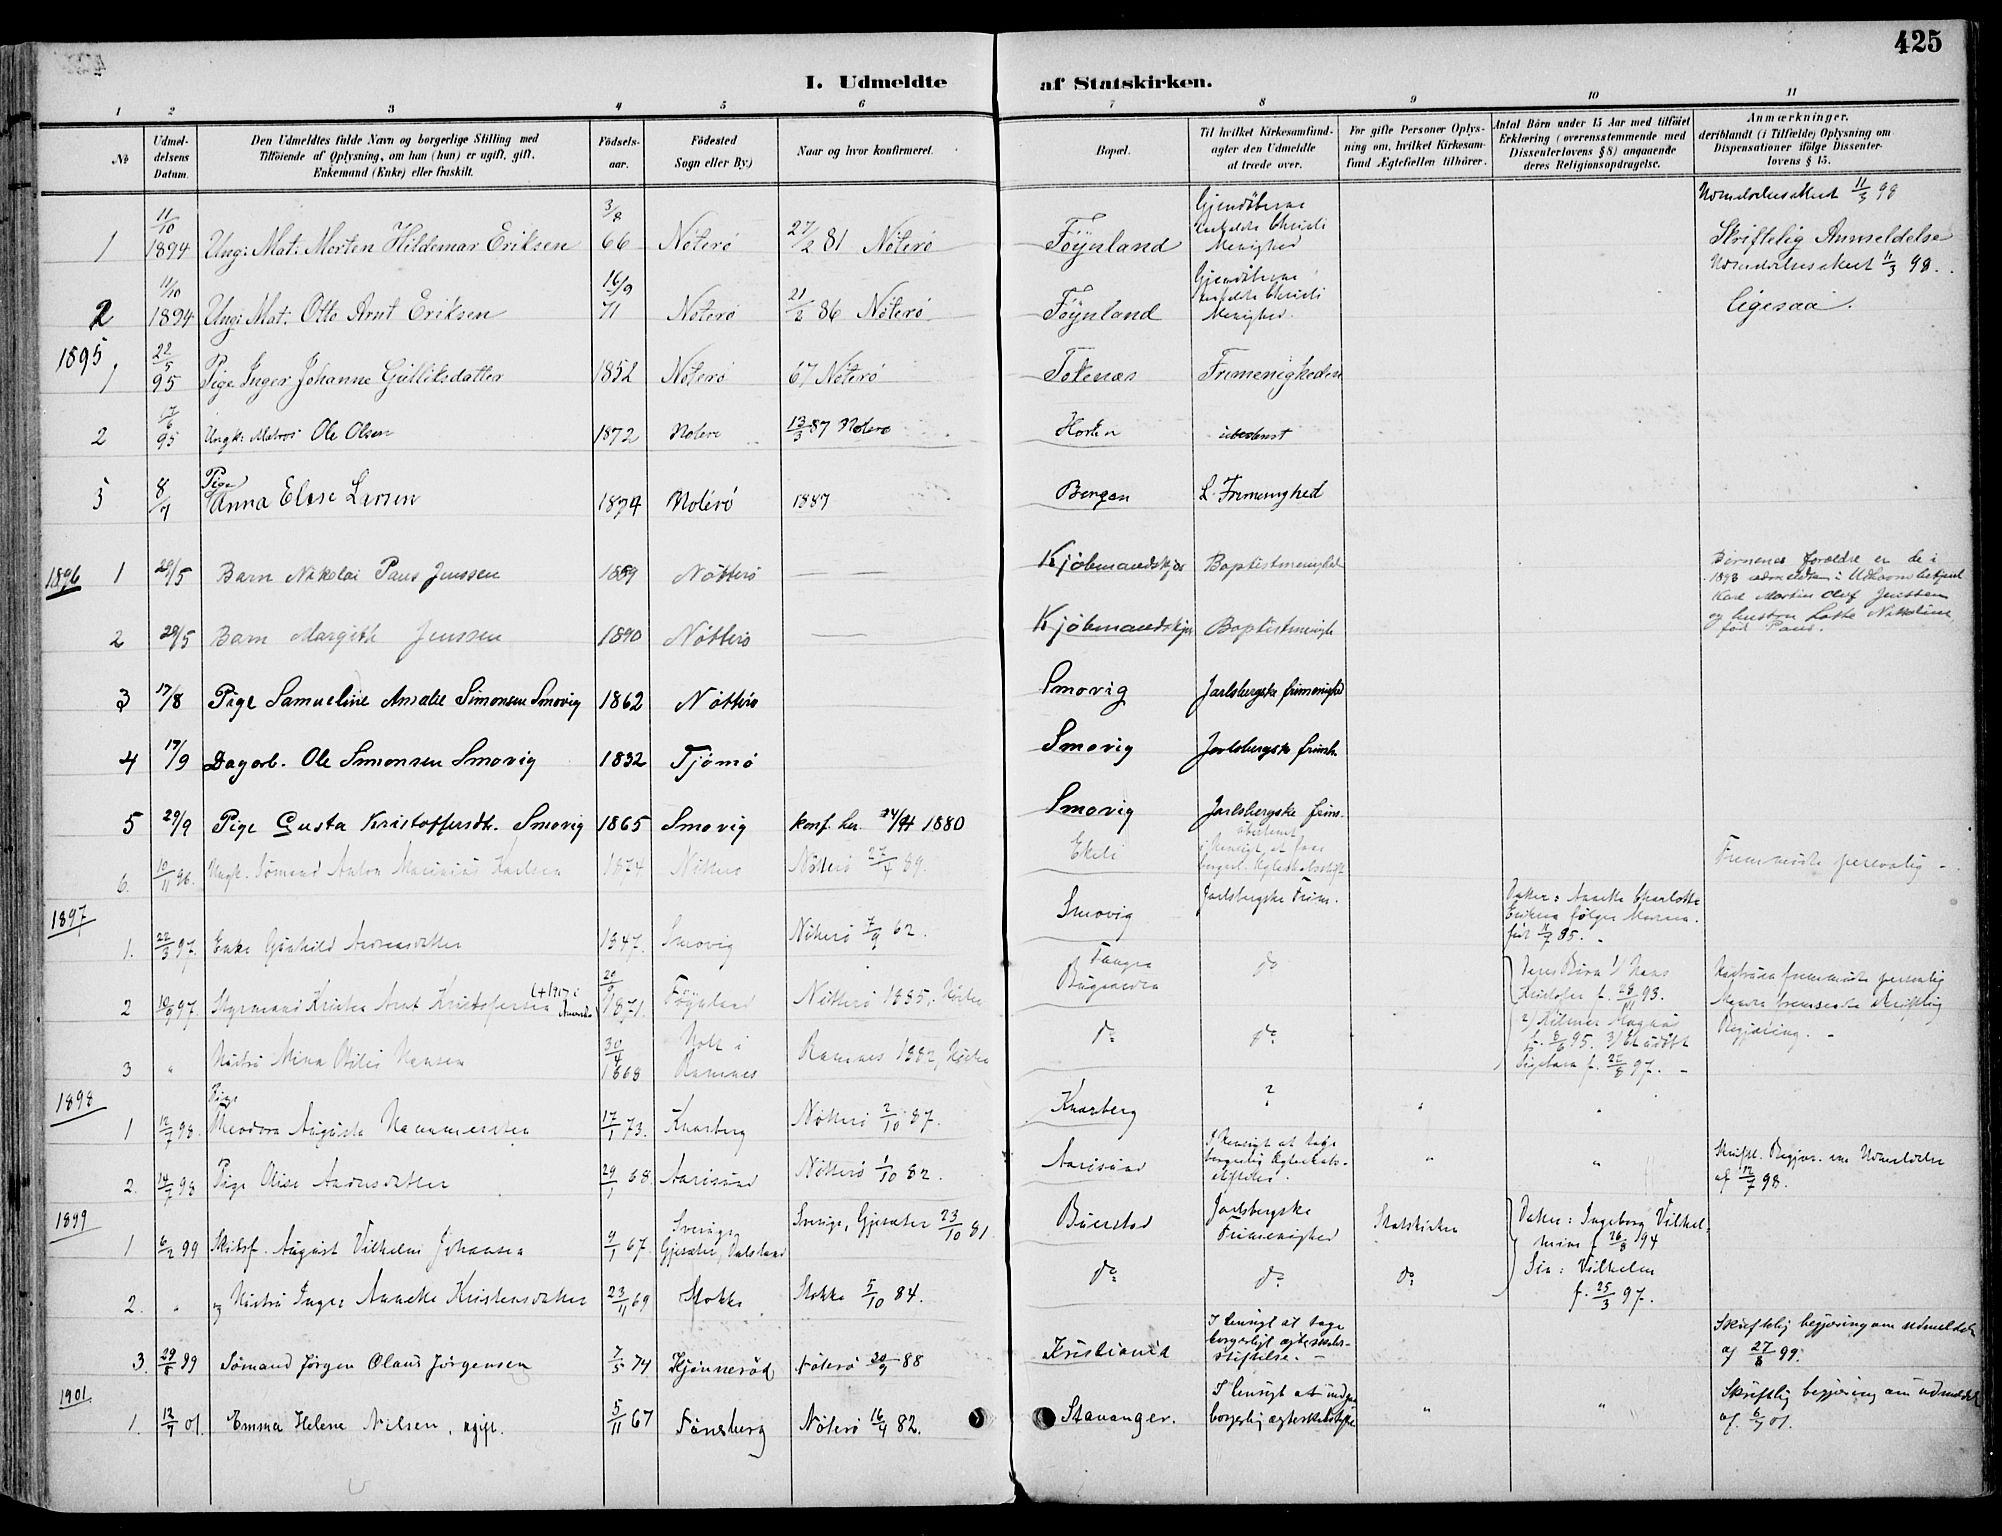 425
I. Udmeldte af Statskirken.
1 2 3 4 5 6 7 8 9 10 11
No
Udmel-
delsens
Datum.
Den Udmeldtes fulde Navn og borgerlige Stilling med
Tilføiende af Oplysning, om han (hun) er ugift, gift,
Enkemand (Enke) eller fraskilt.
Fødsels-
aar.
Fødested
Sogn eller By.)
Naar og hvor konfirmeret.
Bopæl.
Til hvilket Kirkesamfund-
agter den Udmeldte
at træde over.
For gifte Personer Oplys-
ning om, hvilket Kirkesam-
fund Ægtefællen tilhører.
Antal Børn under 15 Aar med tilføiet
Erklæring (overensstemmende med
Dissenterlovens § 8) angaaende
deres Religionsopdragelse.
Anmærkninger.
deriblandt (i Tilfælde) Oplysning om
Dispensationer ifølge Dissenter-
lovens § 15.
1 11/10 1894 Ung: Mat: Morten Hildemar Eriksen 3/8 66 Nøterø 27/2 81 Nøterø Føynland Gjendøberne Menighed Skriftelig Anmeldelse 11/3 98
2 11/10 1894 Ung: Mat. Otto Arnt Eriksen 16/9 71 Nøterø 21/2 86 Nøterø Føynland Gjendøberne Menighed 11/3 98. ligesaa.
1895
1 22/5 95 Pige Inger Johanne Gulliksdatter 1852 Nøterø 67 Nøterø Tokenæs Frimenigheden
2 7/6 95 Ungk: Matros Ole Olsen 1872 Nøterø 13/3 87 Nøterø Horten ubestemt
3 8/7 Pige Anna Elise Larsen 1874 Nøterø 1887 Bergen L. Frimenighed
1896
1 28/5 Barn Nikolai Paus Jenssen 1889 Nøtterø — Kjøbmandskjær Baptistmenighed
Børnenes forældre er de i
1893 udmeldte
Karl Martin Olaf Jenssen
og hustru Lotte Nikoline
født Paus.
2 28/5 Barn Margith Jenssen 1890 Nøtterø — Kjøbmandskjær Baptistmenigh
3 17/8 Pige Samueline Amalie Simonsen Smovig 1862 Nøtterø Smovig Jarlsbergske frimenighed
4 17/9 Dagarb. Ole Simonsen Smovig 1832 Tjømø Smovig Jarlsbergske frimh.
5 29/9 Pige Gusta Kristoffersdtr. Smovig 1865 Smovig konf. her 1880 Smovig Jarlsbergske frim.
6. 10/11 96. Ungk. Sømand Anton Marinius Karlsen 1874 Nøtterø Nøtterø 27/4 89. Ekeli ubestemt Fremmødte personlig –
1897
1. 22/3 97. Enke Gunhild Andreasdatter 1847. Smovig Nøtterø 7/9 62. Smovig Jarlsbergske Frim.
Datter: Annette Charlotte
Eriksen følger Moderen.
født 11/7 85. –
2 10/9 97. Styrmand Kristen Arnt Kristofersen 1871. Føynland Nøtterø 1885, do
Deres Børn 1/ Hans
Kristofer f. 28/11 93.
2/ Hilmer Magnus
f. 8/6 95. 3/ Et udøbt
Pigebarn f. 22/8 97. –
Hustruen fremmødte personlig
Manden fremsendte skriftlig
Begjæring. –
3 " Hustru Mina Otilie Hansen 30/4 1868 Holt i Ramnes Ramnes 1882, do do
1898
1 12/7 98. Pige Theodora Augusta Hammersten 17/1 73. Knarberg Nøtterø 2/10 87. Knarberg ? " "
2. 14/7 98 Pige Olise Andersdatter 29/1 68. Aarøsund Nøtterø 1/10 82. Aarøsund I Hensigt at tage borgerlig Ægteskabs-stiftelse. " " Skriftl. Begjær. om Udmeldelse af 12/7 98.
1899
1 6/2 99 Skibsf. August Vilhelm Johansen 9/1 67. Sverige, Gjesæter, Dalsland Sverige, Gjesæter 23/10 81 Buerstad Jarlsbergske Frimenighed Statskirken
Datter: Ingeborg Vilhel-
mine f 26/8 94
Søn: Vilhelm
f. 25/3 97.
2. " og Hustru Inger Annette Kristensdatter 23/11 69 Stokke Stokke 5/10 84. do do do
3. 29/8 99 Sømand Jørgen Olaus Jørgensen 7/5 74 Hjønnerød Nøterø 30/9 88 Kristiania I hensigt at tage borgerligt ægteskabs-stiftelse. – " " Skriftelig begjæring om udmeldelse af 27/8 99.
1901.
1. 12/7 01. Emma Helene Nilsen, ugift. 5/11 67 Tønsberg Nøterø 16/4 82. Stavanger. I hensigt at indgaa borgerlig ægteskabstifte " " Skriftlig begjæring om udmeldel af 6/7 01.